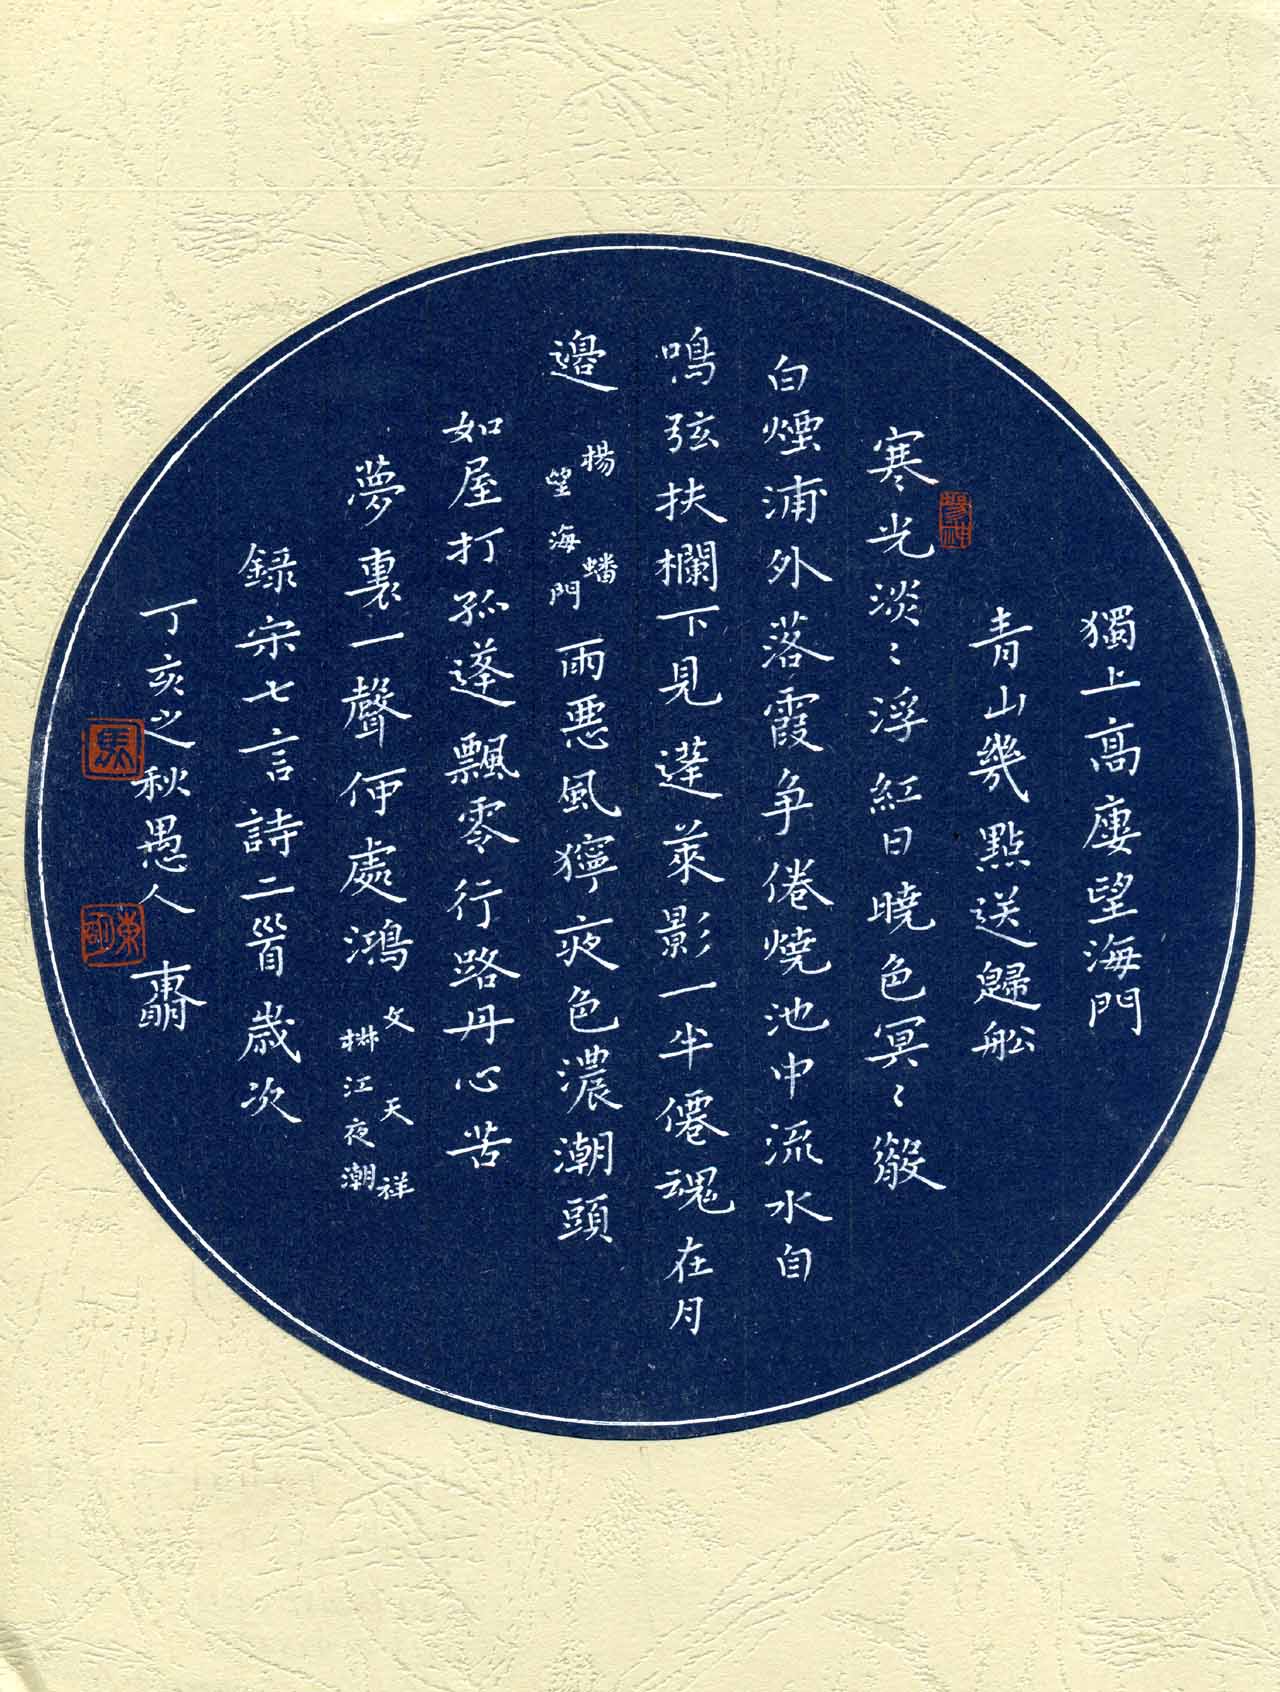 獨上高廔望海門
青山幾點送歸舩
寒光淡〻浮紅日曉色冥〻散
白煙浦外落霞爭倦燒池中流水自
鳴弦扶欄下見蓬萊影一半僊魂在月
邊 楊蟠 望海門 雨惡風獰夜色濃潮頭
如屋打孤蓬飄零行路丹心苦
夢裏一聲何處鴻 文天祥 椒江夜潮
録宋七言詩二首歲次
丁亥之秋愚人
馬